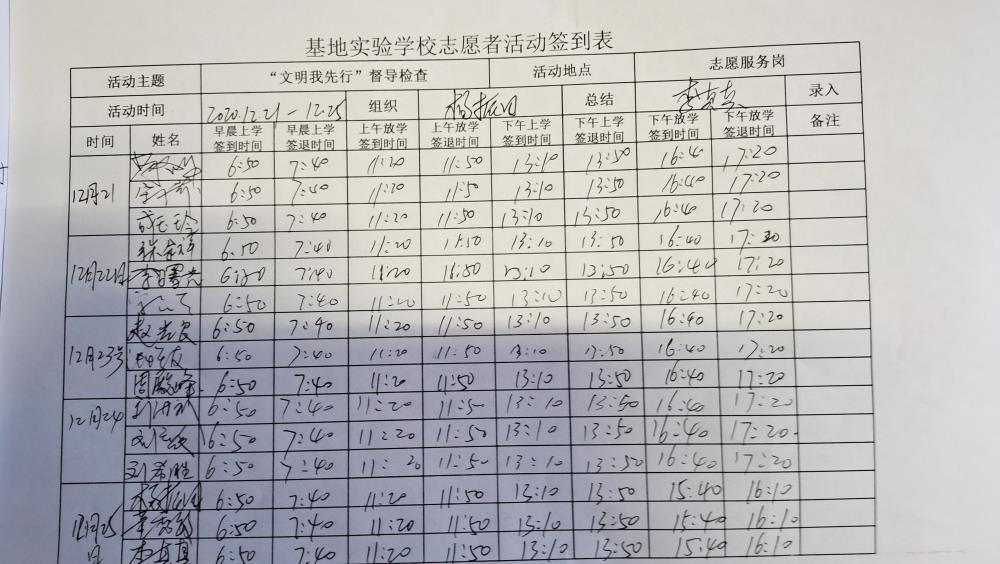 基地实验学校志愿者活动签到表
活动主题 “文明我先行”督导检查 活动地点 志愿服务岗 录入
活动时间 2020.12.21-12.25 组织 杨振国 总结 李真真 备注
时间 姓名 早晨上学签到时间 早晨上学签退时间 上午放学签到时间 上午放学签退时间 下午上学签到时间 下午上学签退时间 下午放学签到时间 下午放学签退时间
12月21 6:50 7:40 11:20 11:50 13:10 13:50 16:40 17:20
6:50 7:40 11:20 11:50 13:10 13:50 16:40 17:20
6:50 7:40 11:20 11:50 13:10 13:50 16:40 17:20
12月22日 6:50 7:40 11:20 11:50 13:10 13:50 16:40 17:20
李曙光 6:50 7:40 11:20 11:50 13:10 13:50 16:40 17:20
6:50 7:40 11:20 11:50 13:10 13:50 16:40 17:20
12月23号 赵光良 6:50 7:40 11:20 11:50 13:10 13:50 16:40 17:20
6:50 7:40 11:20 11:50 13:10 13:50 16:40 17:20
周俊峰 6:50 7:40 11:20 11:50 13:10 13:50 16:40 17:20
12月24 6:50 7:40 11:20 11:50 13:10 13:50 16:40 17:20
6:50 7:40 11:20 11:50 13:10 13:50 16:40 17:20
刘希胜 6:50 7:40 11:20 11:50 13:10 13:50 16:40 17:20
12月25日 杨振国 6:50 7:40 11:20 11:50 13:10 13:50 15:40 16:10
6:50 7:40 11:20 11:50 13:10 13:50 15:40 16:10
李真真 6:50 7:40 11:20 11:50 13:10 13:50 15:40 16:10